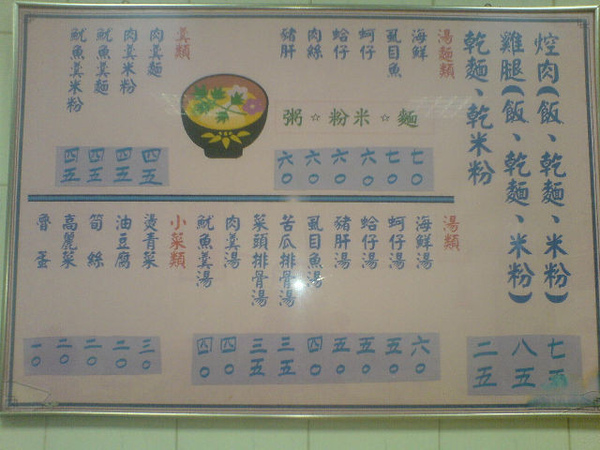 焢肉(飯、乾麵、米粉)
雞腿(飯、乾麵、米粉)
乾麵、乾米粉
七五
八五
二五
湯麵類
海鮮
虱目魚
蚵仔
蛤仔
肉絲
豬肝
麵☆米粉☆粥
七〇
七〇
六〇
六〇
六〇
六〇
羹類
肉羹麵
肉羹米粉
魷魚羹麵
魷魚羹米粉
四五
四五
四五
四五
湯類
海鮮湯
蚵仔湯
蛤仔湯
豬肝湯
虱目魚湯
苦瓜排骨湯
菜頭排骨湯
肉羹湯
魷魚羹湯
六〇
五〇
五〇
五〇
四〇
三五
三五
四〇
四〇
小菜類
燙青菜
油豆腐
筍絲
高麗菜
魯蛋
三〇
二〇
二〇
二〇
一〇